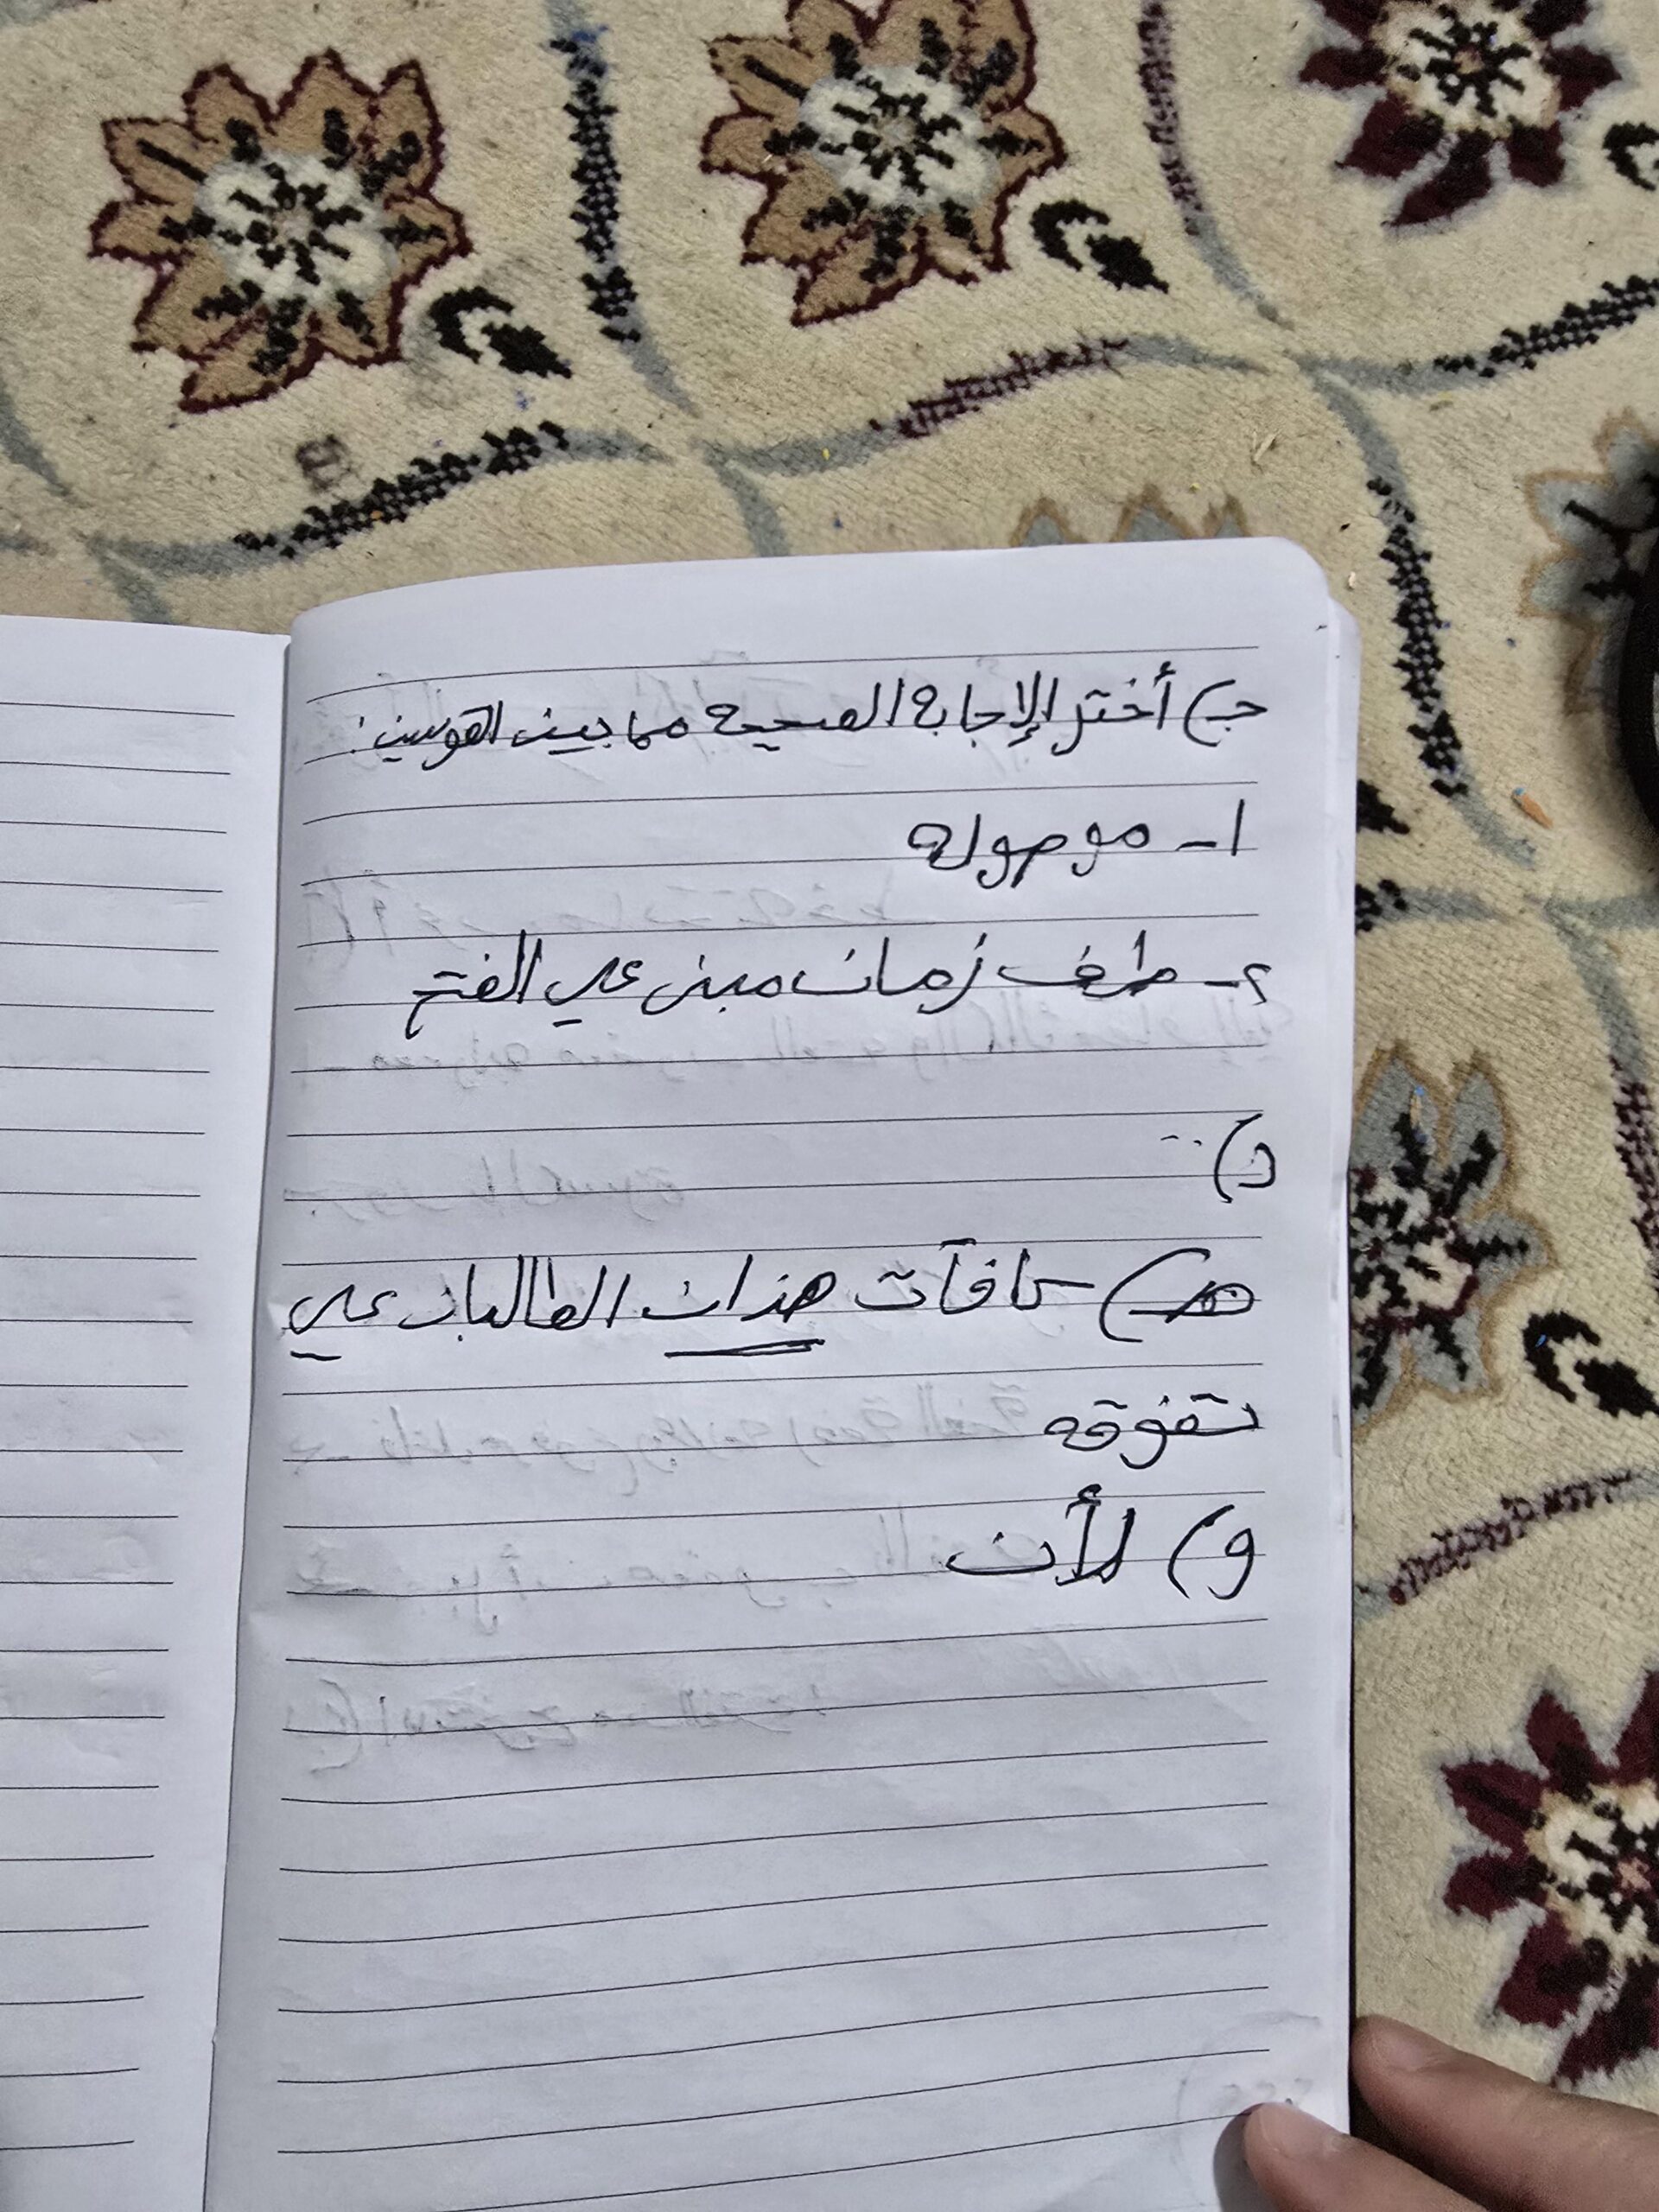 جـ) أختر الإجابة الصحيحه مما بين القوسين:
١- موصوله
٢- ظرف زمان مبنى على الفتح
د) ...
هـ) كافآت هذان الطالبان على
تفوقه
و) لأن